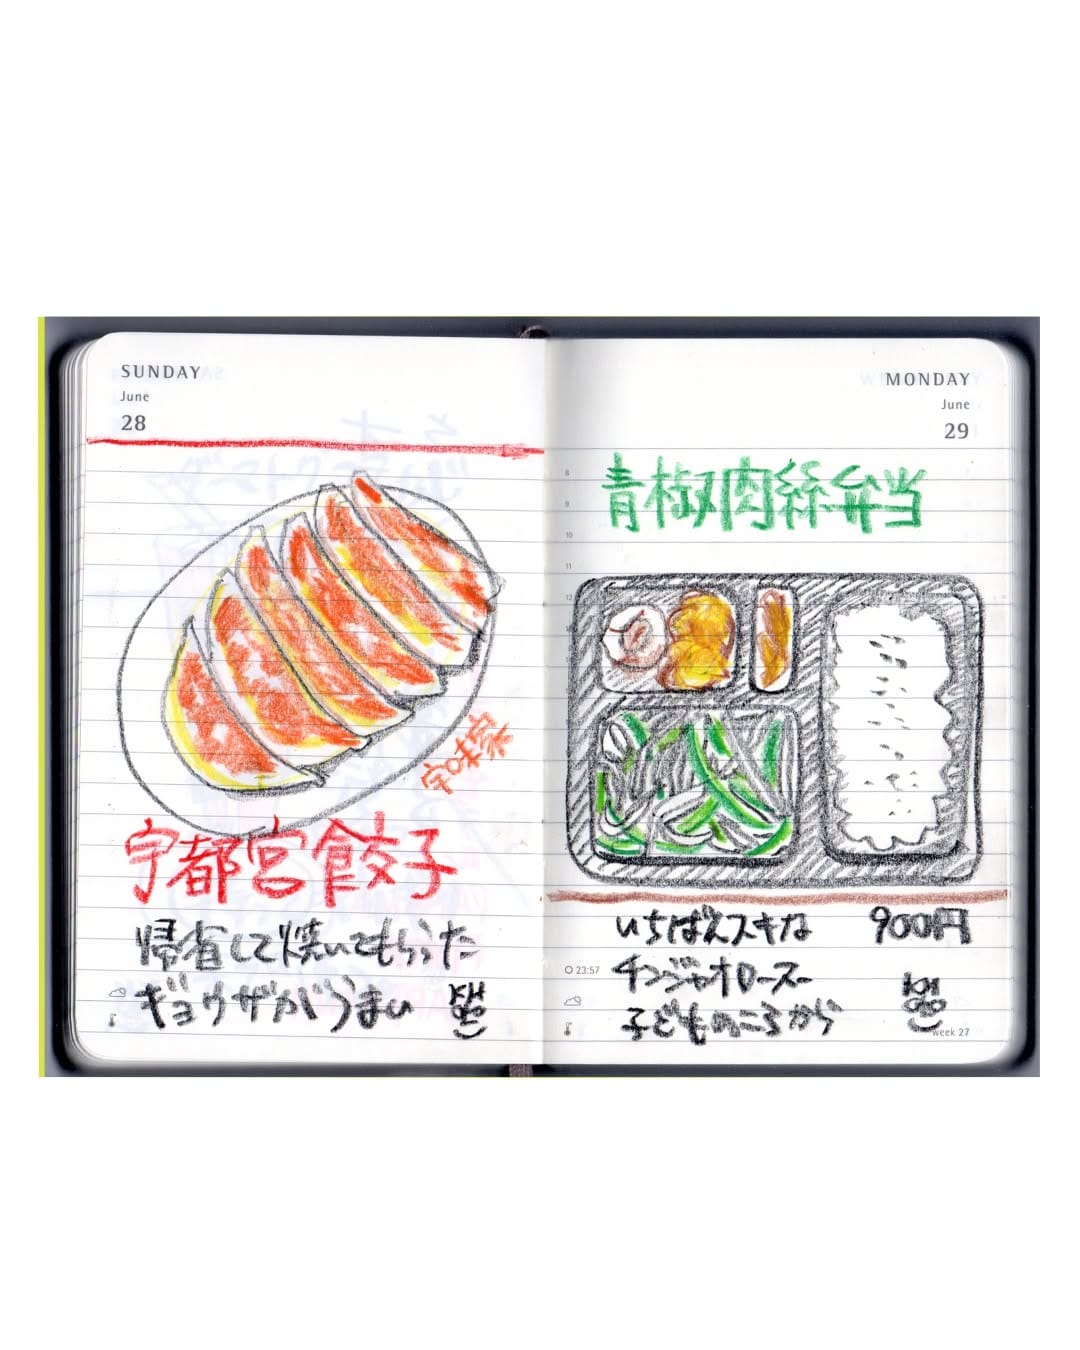 SUNDAY
June
28
宇味家
宇都宮餃子
帰省して焼いてもらった
ギョウザがうまい
MONDAY
June
29
青椒肉絲弁当
8
9
10
11
12
いちばんスキな 900円
23:57
チンジャオロースー
子どものころから
week 27